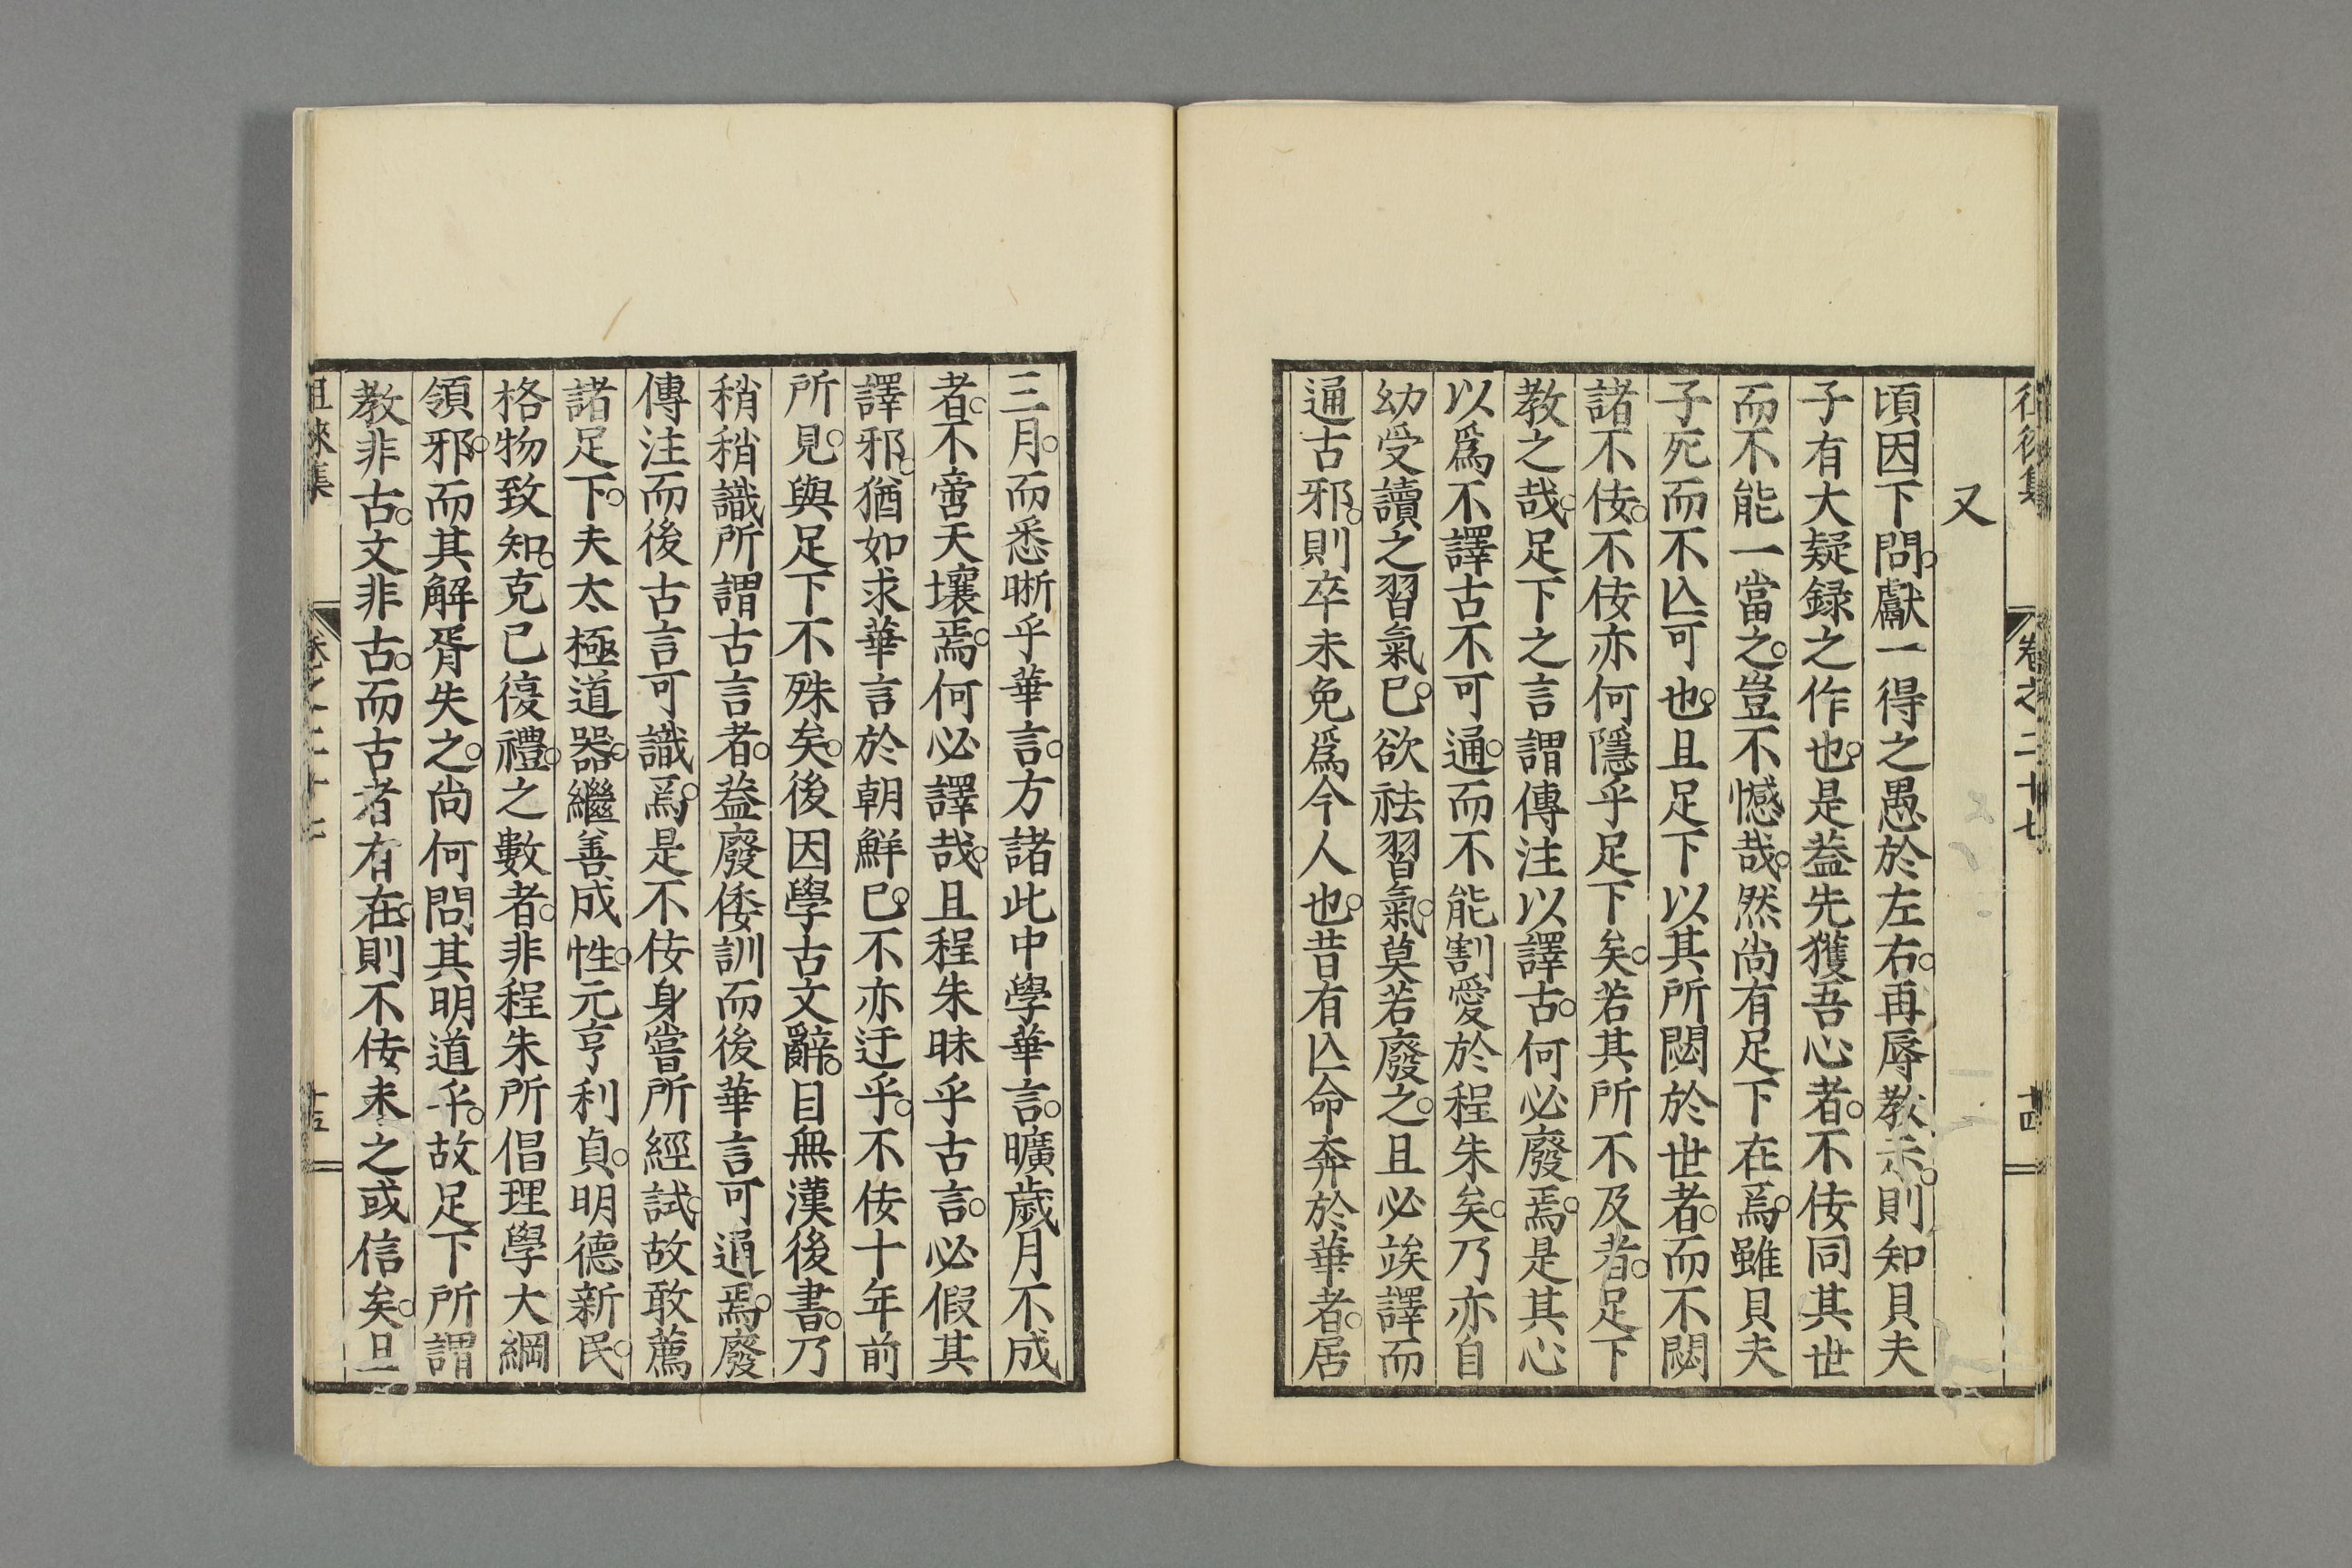 徂徠集 卷之二十七 十四
又
頃因下問。獻一得之愚於左右。再辱教示。則知貝夫
子有大疑録之作也。是葢先獲吾心者。不佞同其世
而不能一當之。豈不憾哉。然尚有足下在焉。雖貝夫
子死而不亾可也。且足下以其所閟於世者。而不閟
諸不佞。不佞亦何隱乎足下矣。若其所不及者。足下
教之哉。足下之言謂傳注以譯古。何必廢焉。是其心
以爲不譯古不可通。而不能割愛於程朱矣。乃亦自
幼受讀之習氣已。欲祛習氣。莫若廢之。且必竢譯而
通古邪。則卒未免爲今人也。昔有亾命奔於華者。居
三月。而悉晣乎華言。方諸此中學華言。曠歲月不成
者。不啻天壤焉。何必譯哉。且程朱昧乎古言。必假其
譯邪。猶如求華言於朝鮮已。不亦迂乎。不佞十年前
所見。與足下不殊矣。後因學古文辭。目無漢後書。乃
稍稍識所謂古言者。葢廢倭訓而後華言可通焉。廢
傳注而後古言可識焉。是不佞身嘗所經試。故敢薦
諸足下。夫太極道器。繼善成性。元亨利貞。明德新民。
格物致知。克己復禮。之數者。非程朱所倡理學大綱
領邪。而其解胥失之。尚何問其明道乎。故足下所謂
教非古。文非古。而古者有在。則不佞未之或信矣。且
徂徠集 卷之二十七 十五